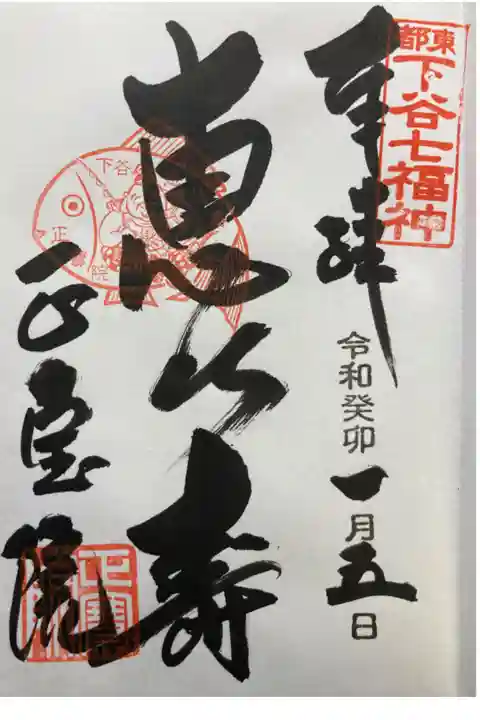 東都
下谷七福神
奉拝
令和癸卯一月五日
恵比寿
下谷
正寶院
正宝院
正寶院